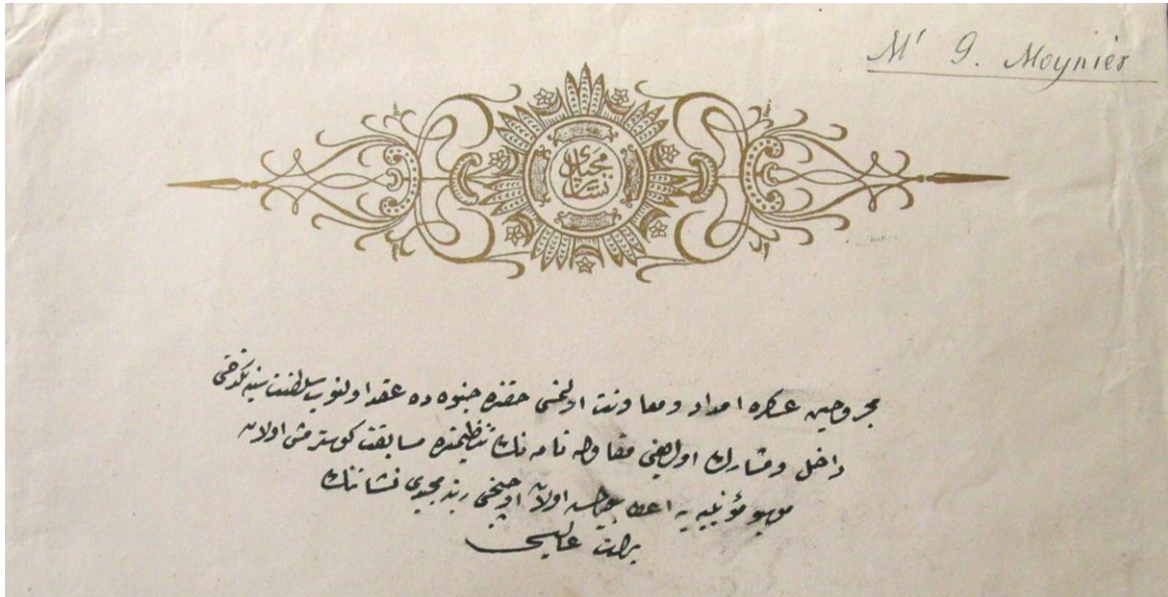 Mr G. Moynier
نشان مجيدى
مجروحين عسكره امداد ومعاونت اولنمسى حقنده جنوه ده عقد اولنوب سلطنت سنيه نكدخى
داخل ومشارك اولديغى مقاوله نامه نك تنظيمنده مسابقت كوسترمش اولان
موسيو مؤنيه يه اعطا بيوريلان اوچنجى رتبه مجيدى نشاننك
برات عاليسى